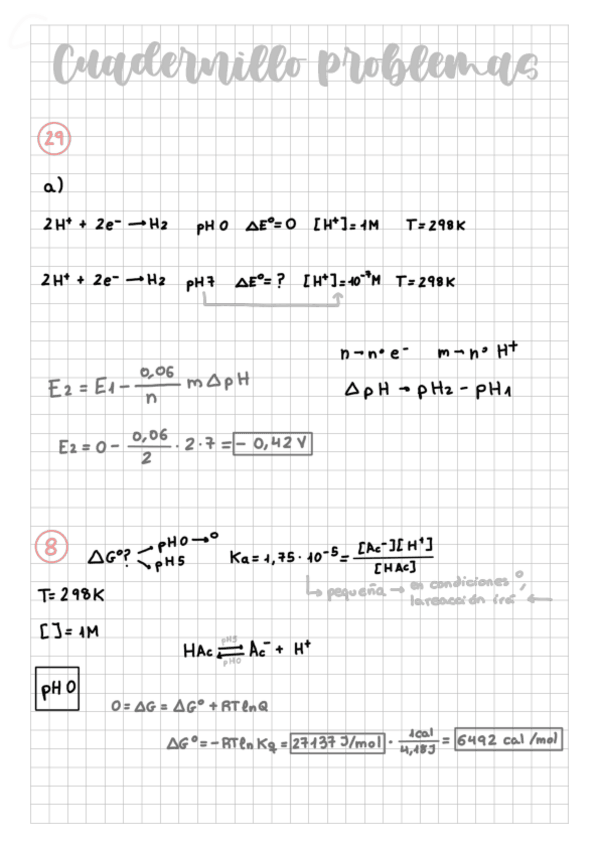 Cuadernillo problemas
29
a)
2H⁺ + 2e⁻ → H₂ pH 0 ΔEº = 0 [H⁺] = 1M T = 298K
2H⁺ + 2e⁻ → H₂ pH 7 ΔEº = ? [H⁺] = 10⁻⁷M T = 298K
n → nº e⁻ m → nº H⁺
E₂ = E₁ - 0,06/n m Δ pH
Δ pH → pH₂ - pH₁
E₂ = 0 - 0,06/2 · 2 · 7 = - 0,42 V
8
ΔGº? pH 0 → º
pH 5
Ka = 1,75 · 10⁻⁵ = [Ac⁻][H⁺]/[HAc]
pequeña → en condiciones º,
la reacción irá ←
T = 298K
[ ] = 1M
HAc ⇌ Ac⁻ + H⁺
pH5
pH0
pH 0
0 = ΔG = ΔGº + RT ln Q
ΔGº = - RT ln Kq = 27137 J/mol · 1cal/4,18J = 6492 cal/mol